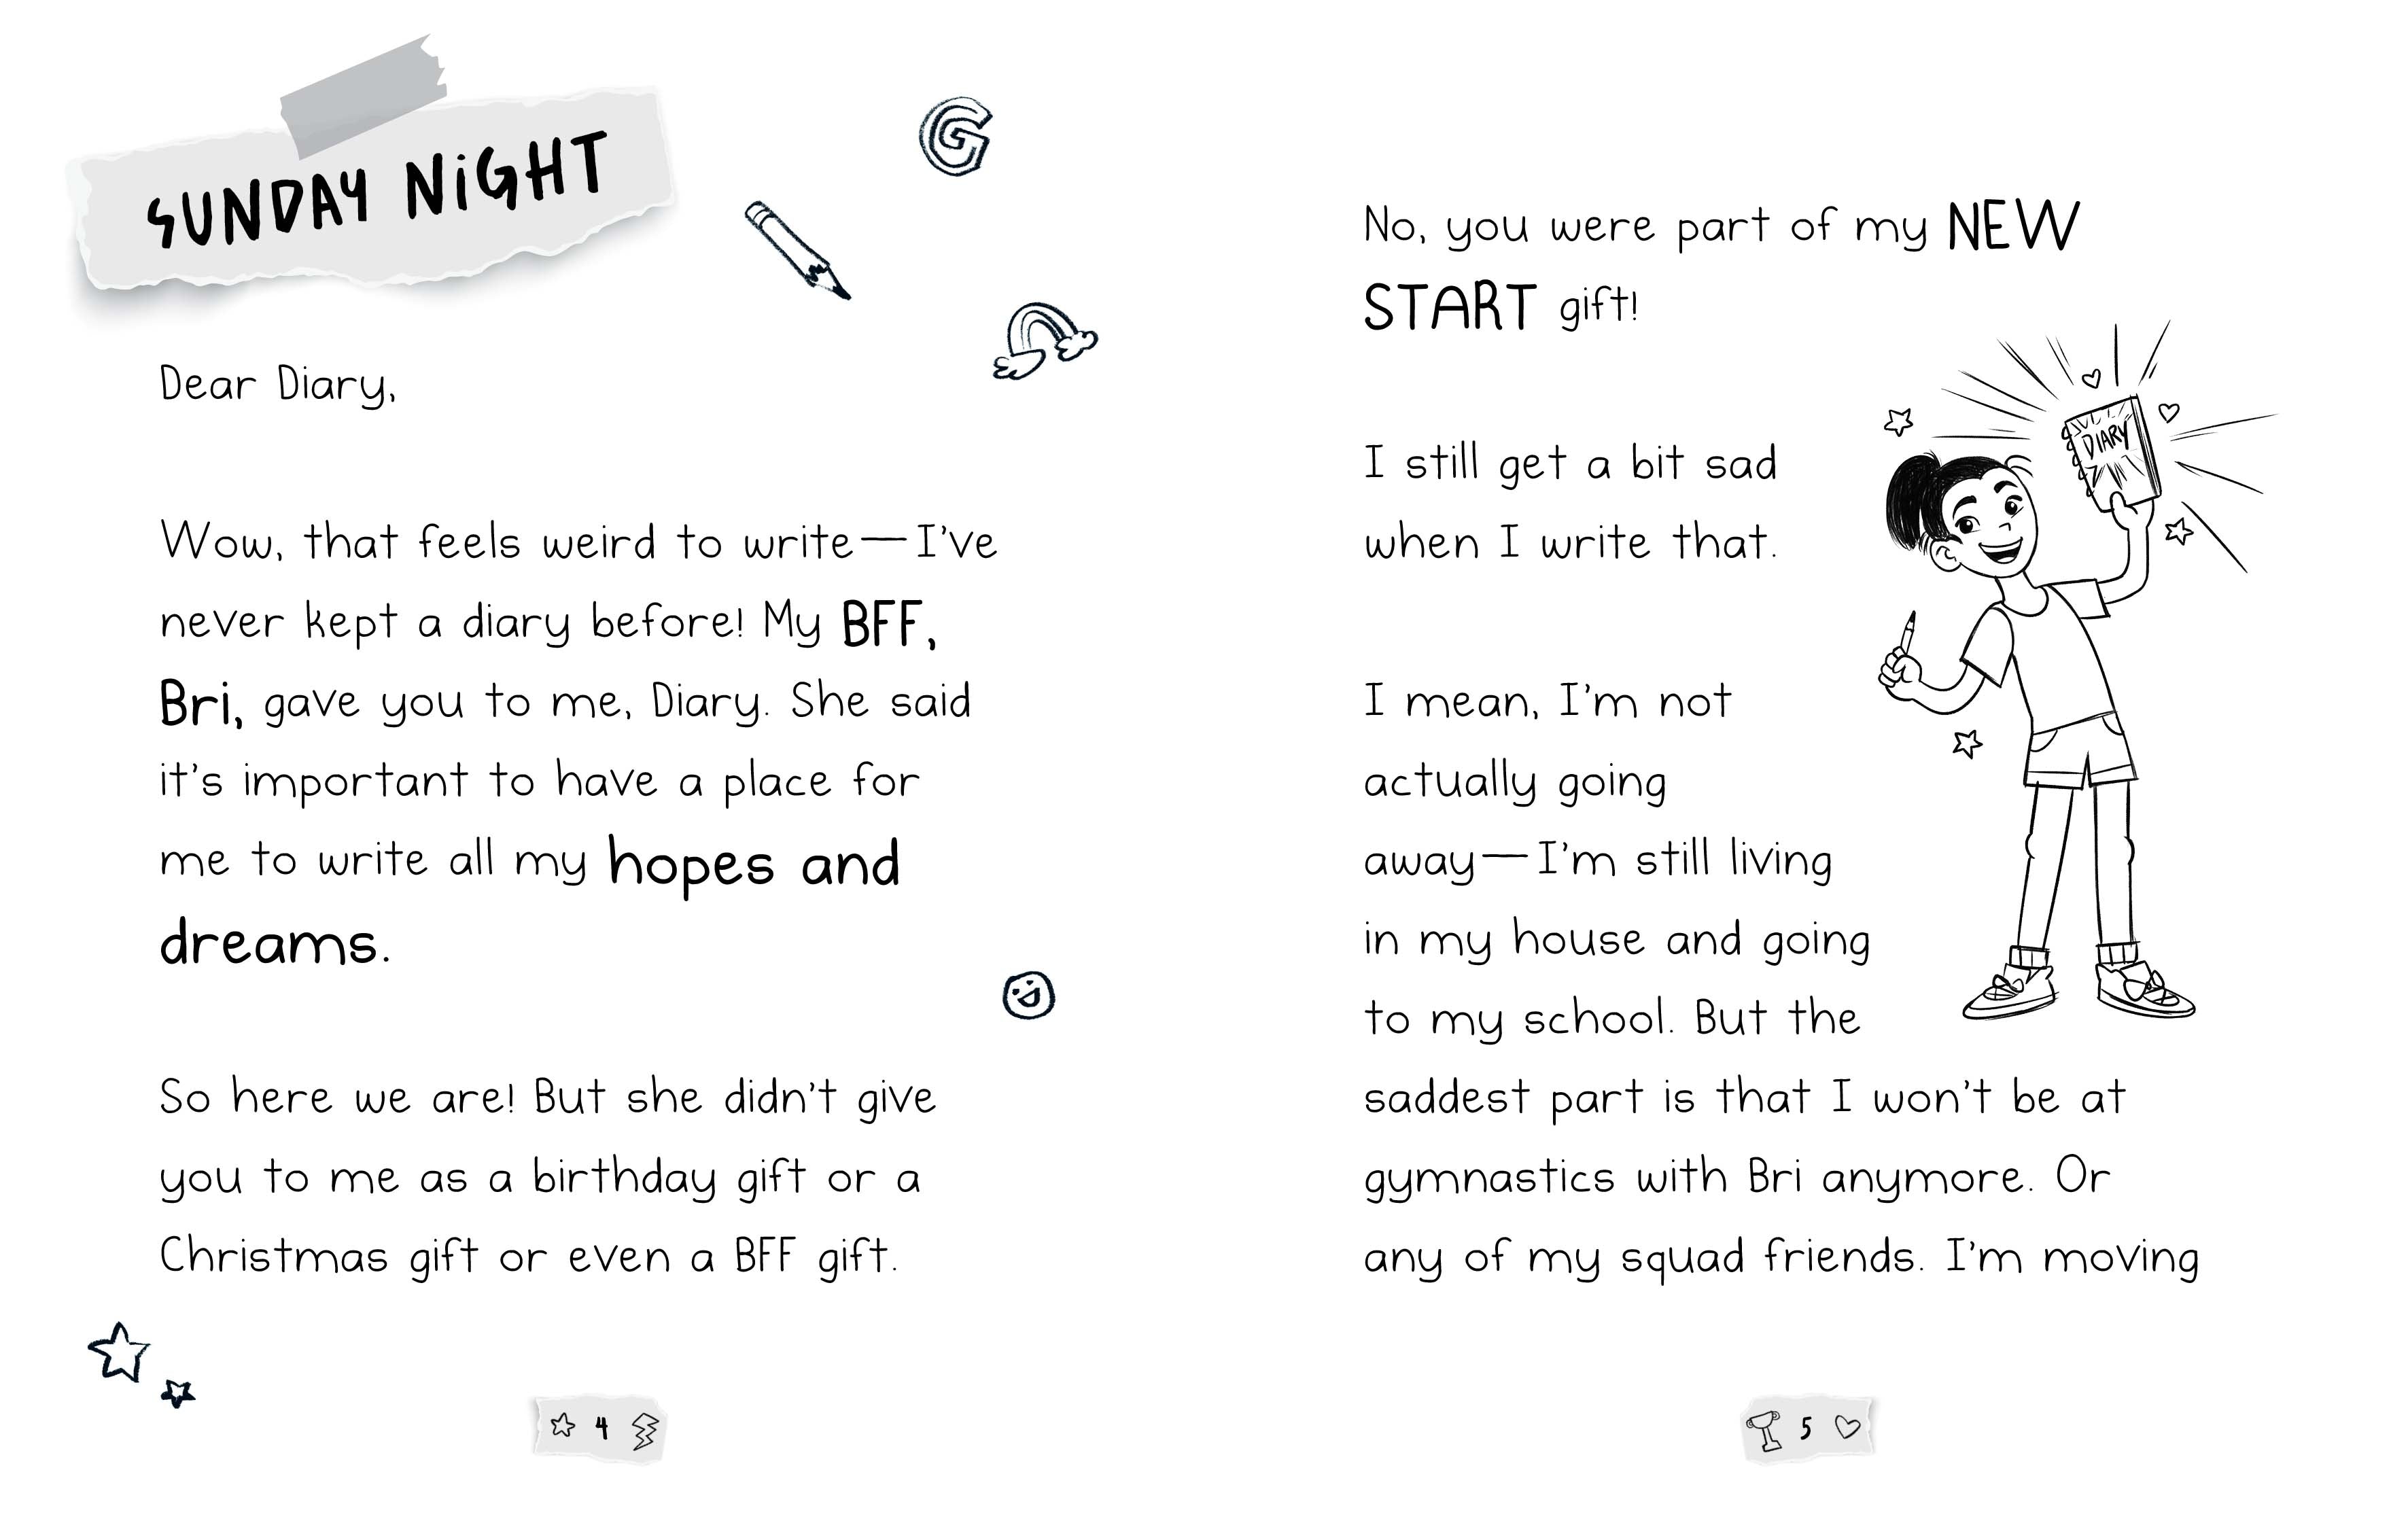 SUNDAY NiGHT
G
Dear Diary,
Wow, that feels weird to write—I've
never kept a diary before! My BFF,
Bri, gave you to me, Diary. She said
it's important to have a place for
me to write all my hopes and
dreams.
So here we are! But she didn't give
you to me as a birthday gift or a
Christmas gift or even a BFF gift.
4
No, you were part of my NEW
START gift!
DIARY
I still get a bit sad
when I write that.
I mean, I'm not
actually going
away—I'm still living
in my house and going
to my school. But the
saddest part is that I won't be at
gymnastics with Bri anymore. Or
any of my squad friends. I'm moving
5